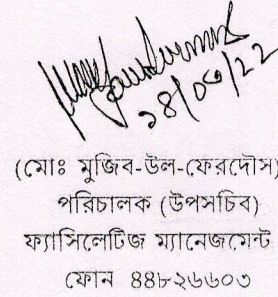 ১৪/০৩/২২
(মোঃ মুজিব-উল-ফেরদৌস)
পরিচালক (উপসচিব)
ফ্যাসিলেটিজ ম্যানেজমেন্ট
ফোন ৪৪৮২৬৬০৩